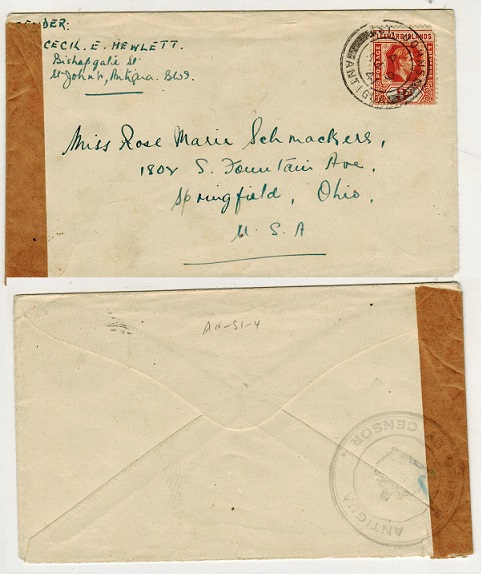 SENDER:
CECIL. E. HEWLETT.
Bishopgate St
St John's, Antigua. BWI.
LEEWARD ISLANDS
ANTIGUA
Miss Rose Marie Schmackers,
1802 S. Fountain Ave,
Springfield, Ohio,
U. S. A
AN-51-4
CENSOR
ANTIGUA